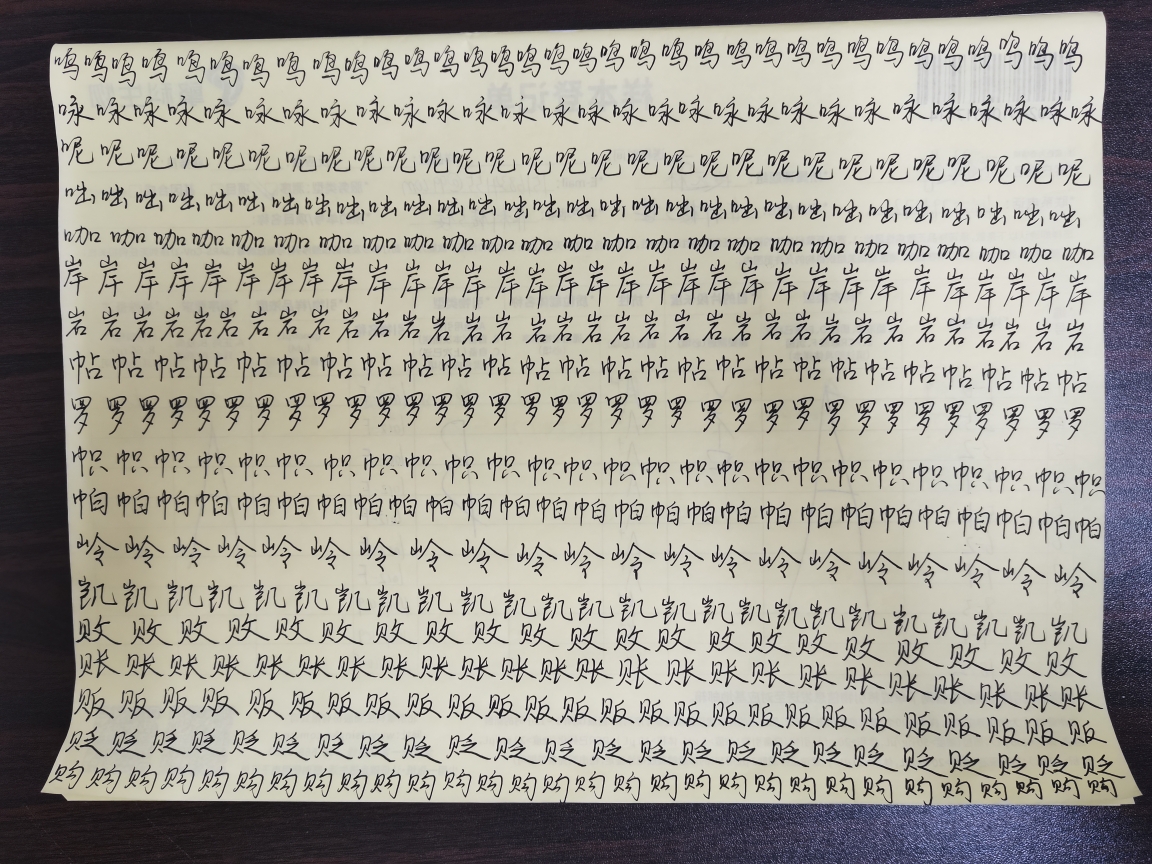 鸣鸣鸣鸣鸣鸣鸣鸣鸣鸣鸣鸣鸣鸣鸣鸣鸣鸣鸣鸣鸣鸣鸣鸣鸣鸣鸣鸣鸣鸣鸣鸣鸣鸣
咏咏咏咏咏咏咏咏咏咏咏咏咏咏咏咏咏咏咏咏咏咏咏咏咏咏咏咏咏
呢呢呢呢呢呢呢呢呢呢呢呢呢呢呢呢呢呢呢呢呢呢呢呢呢呢呢呢呢
咄咄咄咄咄咄咄咄咄咄咄咄咄咄咄咄咄咄咄咄咄咄咄咄咄咄咄咄咄咄
咖咖咖咖咖咖咖咖咖咖咖咖咖咖咖咖咖咖咖咖咖咖咖咖咖
岸岸岸岸岸岸岸岸岸岸岸岸岸岸岸岸岸岸岸岸岸岸岸岸岸岸岸岸岸岸岸岸
岩岩岩岩岩岩岩岩岩岩岩岩岩岩岩岩岩岩岩岩岩岩岩岩岩岩岩岩岩岩岩岩岩岩
帖帖帖帖帖帖帖帖帖帖帖帖帖帖帖帖帖帖帖帖帖帖帖帖帖帖
罗罗罗罗罗罗罗罗罗罗罗罗罗罗罗罗罗罗罗罗罗罗罗罗罗罗罗罗罗罗罗罗罗罗
帜帜帜帜帜帜帜帜帜帜帜帜帜帜帜帜帜帜帜帜帜帜帜帜帜帜
帕帕帕帕帕帕帕帕帕帕帕帕帕帕帕帕帕帕帕帕帕帕帕帕帕帕帕
岭岭岭岭岭岭岭岭岭岭岭岭岭岭岭岭岭岭岭岭岭
凯凯凯凯凯凯凯凯凯凯凯凯凯凯凯凯凯凯凯凯凯凯凯凯凯
败败败败败败败败败败败败败败败败败败败败败
账账账账账账账账账账账账账账账账账账账账账账账账
贩贩贩贩贩贩贩贩贩贩贩贩贩贩贩贩贩贩贩贩贩贩贩贩贩贩
贬贬贬贬贬贬贬贬贬贬贬贬贬贬贬贬贬贬贬贬贬贬贬贬
购购购购购购购购购购购购购购购购购购购购购购购购购购购购购购